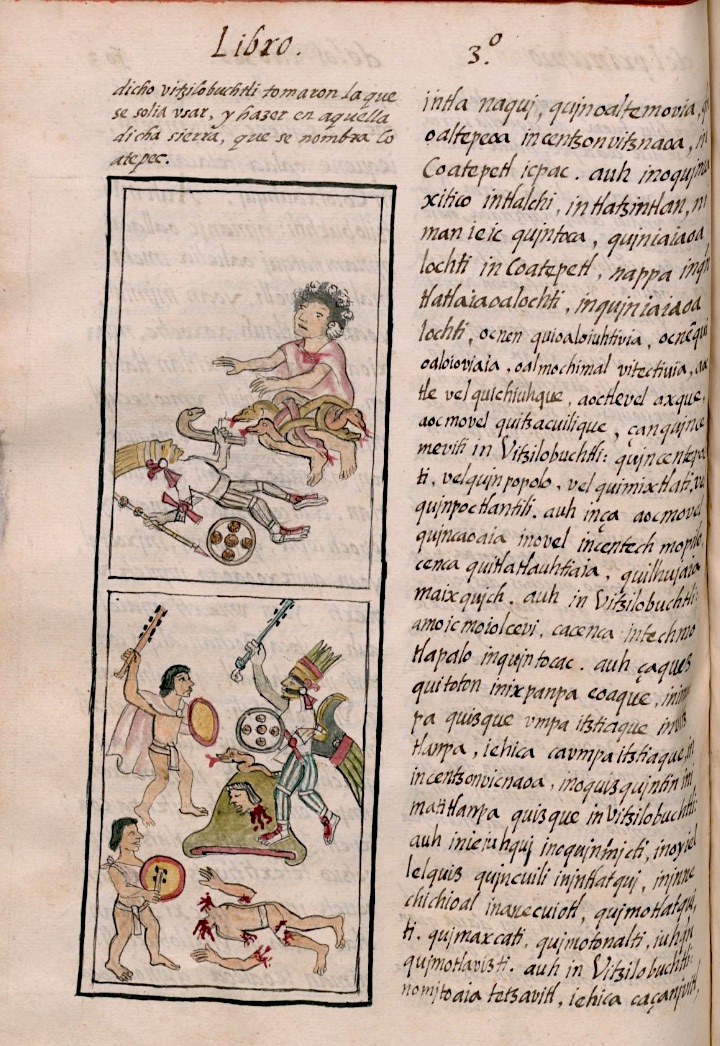 Libro. 3.º
dicho vitzilobuchtli tomaron la que
se solia vsar, y hazer en aquella
dicha sierra, que se nombra Co
atepec.
intla naquj, qujnoaltemovia,
oaltepeoa in centzonvitznaoa,
Coatepetl icpac. auh inoqujma
xitico intlalchi, in tlatzintlan, nj
man ie ic qujntoca, qujniaiaoa
lochti in Coatepetl, nappa
tlatlaiaoalochti, inqujniaiaoa
lochti, ocnen quioaloiuhtivia,
oaloioviaia, oalmochimal vitectiuia,
tle vel quichiuhque, aoctlevel axque,
aoc movel quitzacuilique, çan qujnce
meviti in Vitzilobuchtli: qujncentepe
ti, vel qujn popolo, vel quimixtlati,
qujnpoctlantili. auh inça aocmovel
qujncaoaia inovel incentech mopilo,
cenca quitlatlauhtiaia, quilhujaia
maixqujch. auh in Vitzilobuchtli
amo ic moiolcevi, ca cenca intech mo
tlapalo inqujntocac. auh çaquez
quitoton inixpanpa eoaque,
pa quizque vmpa itztiaque
tlanpa, iehica ca vmpa itztiaque,
in centzonvicnaoa, inoquizquintin
matitlanpa quizque in Vitzilobuchtli:
auh in ie iuhquj inoqujnmjcti, inoyxel
lelquiz quincuili inintlatquj, injnne
chichioal inanecuiotl, qujmotlatquj
ti. qujmaxcati, qujmotonalti, iuhqn
qujmotlavizti. auh in Vitzilobuchtli:
no mjtoaia tetzavitl, iehica caçanjuitl,